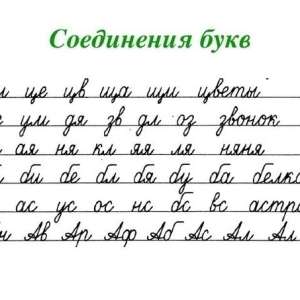 Соединения букв
це цв ща щи цветы
ум дя зв дл оз звонок
ая ня кл яя ля няня
би бе бл бя бу ба белка
ас ус ос нс бс вс астра
Ав Ар Аф Аб Ас Ал Ал